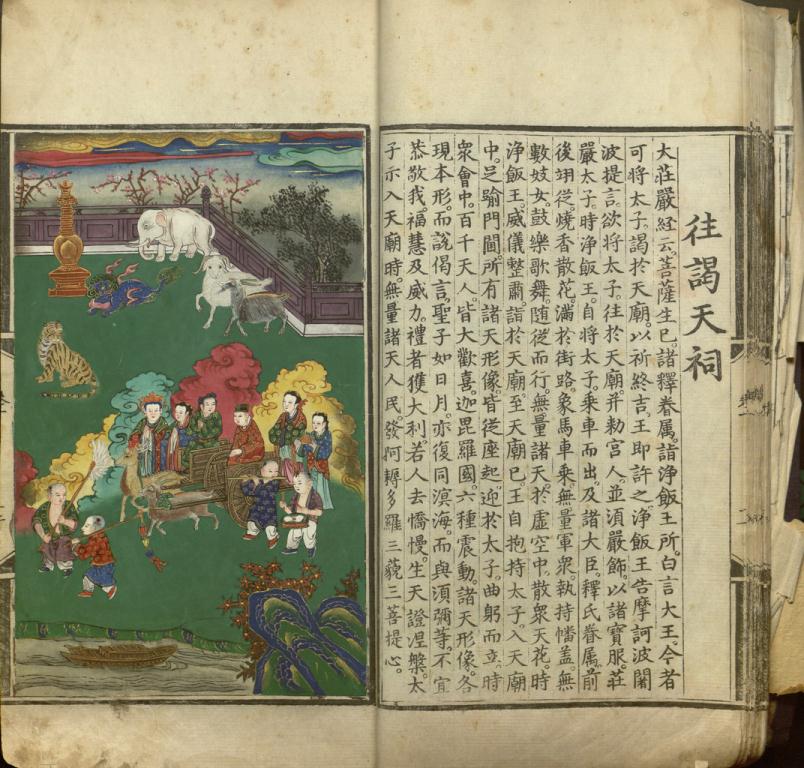 往謁天祠
大莊嚴經云。菩薩生已。諸釋眷属。詣淨飯王所。白言大王。今者
可將太子。謁於天廟。以祈終吉。王即許之。淨飯王告摩訶波闍
波提言。欲將太子。往於天廟。并勑宮人。並須嚴飾。以諸寶服。莊
嚴太子。時淨飯王。自將太子。乘車而出。及諸大臣。釋氏眷属。前
後翊從。燒香散花。滿於街路。象馬車乘。無量軍衆。執持幡蓋。無
數妓女。鼓樂歌舞。随從而行。無量諸天。於虛空中。散衆天花。時
淨飯王。威儀整肅。詣於天廟。至天廟已。王自抱持太子。入天廟
中。足踰門閫。所有諸天形像。皆從座起。迎於太子。曲躬而立。時
衆會中。百千天人。皆大歡喜。迦毘羅國。六種震動。諸天形像。各
現本形。而說偈言。聖子如日月。亦復同溟海。而與須彌等。不宜
恭敬我。福慧及威力。禮者獲大利。若人去憍慢。生天證涅槃。太
子示入天廟時。無量諸天人民。發阿耨多羅三藐三菩提心。